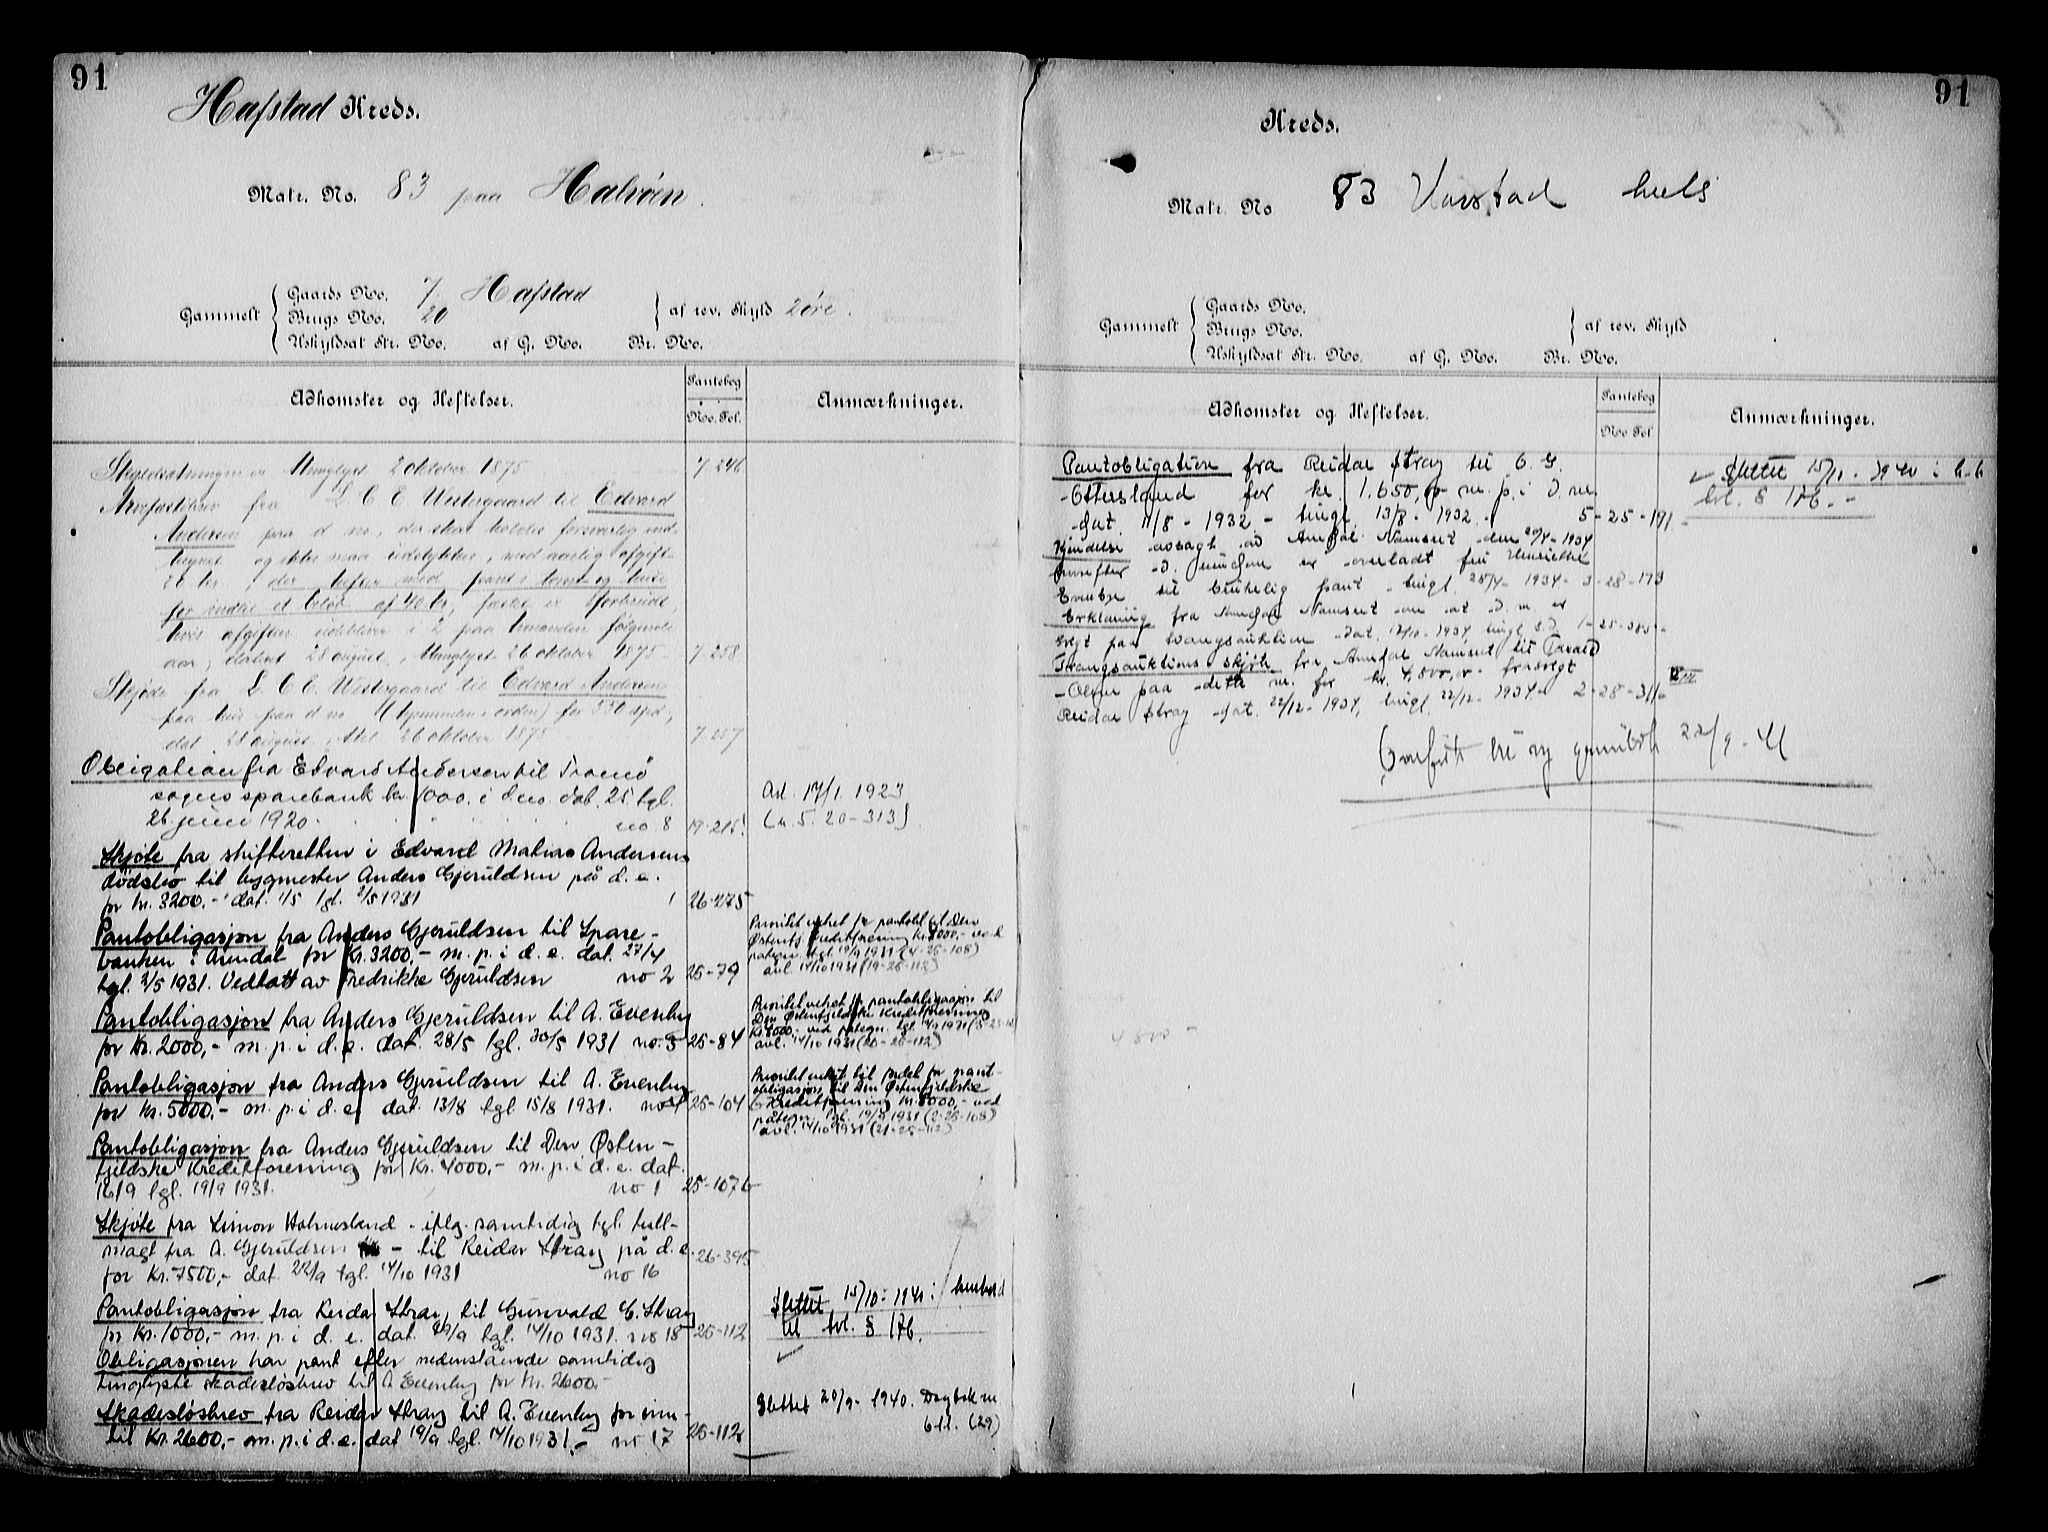 91
Hafstad Kreds.
Matr. No. 83 paa Halvöen.
Gammelt
Gaards No. 7. Hafstad
Brugs No. 20
af rev. Skyld 2 öre.
Uskyldsat Str. No. af G. No. Br. No.
Adkomster og Heftelser.
Pantebog
No. Fol.
Anmærkninger.
thinglyst 2 oktober 1875 7 246
fra L C E Westergaard til Edvard
Andersen paa d no, der skal holdes forsvarlig ind-
hegnet og ikke maa udstykkes, mod aarlig afgift
der hefter med pant i tomt og huse
for indtil et beløb af 40 kr, fæstet er forbrudt,
hvis afgiften udebliver i 2 paa hinanden følgende
aar, dateret 28 august, thinglyst 26 oktober 1875 7 258
Skjøde fra L. C. E. Westergaard til Edvard Andersen
paa hus paa d no (hjemmelen i orden) for 550 spd,
dat 28 august, 26 oktober 1875 7 257
Obligation fra Edvard Andersen til Tromö
sogns sparebank kr 1000. i d no. dat. 25. tgl.
26 juni 1920. no. 8 19-215
Avl. 17/1. 1923
(n. 5. 20-313)
Skjøte fra skifteretten i Edvard Matias Andersens
dödsbo til bygmester Anders Gjeruldsen på d. e.
for kr. 3200.- dat. 1/5 tgl. 2/5 1931 1 26-275
Pantobligasjon fra Anders Gjeruldsen til Spare-
banken i Arendal for Kr. 3200,- m. p. i d. e. dat. 27/4
tgl. 2/5 1931. Vedtatt av Fredrikke Gjeruldsen no 2 25-79
Prioritet veket for pantobl til Den
Østenfj Kreditforening Kr. 4000,- ved
påtegn. tgl. 19/9 1931 (4-25-108)
avl. 14/10 1931 (19-25-112)
Pantobligasjon fra Anders Gjeruldsen til A. Evenby
for Kr. 2000,- m. p. i d. e. dat. 28/5 tgl. 30/5 1931 no 3 25-84
Prioritet veket for pantobligasjon til
Den Østenfjeldske Kreditforening
Kr. 4000,- ved påtegn. tgl. 19/9 1931
avl. 14/10 1931 (20-25-112)
Pantobligasjon fra Anders Gjeruldsen til A. Evenby
for Kr. 5000,- m. p. i d. e. dat. 13/8 tgl 15/8 1931. no 4 25-104
Prioritet veket til fordel for pant-
obligasjon til Den Østenfjeldske
Kreditforening Kr. 4000,- ved
påtegn. tgl. 19/9 1931 (2-25-108)
avl. 14/10 1931 (21-25-112)
Pantobligasjon fra Anders Gjeruldsen til Den Østen-
fjeldske Kreditforening for Kr. 4000,- m. p. i d. e. dat.
16/9 tgl. 19/9 1931. no 1 25-107b
Skjøte fra Simon Holmesland - iflg. samtidig tgl. full-
magt fra A. Gjeruldsen - til Reidar Stray på d. e.
for Kr. 7500,- dat. 22/9 tgl. 14/10 1931 no 16 26-395
Pantobligasjon fra Reidar Stray til Gunvald C. Stray
for Kr. 1000,- m. p. i d. e. dat. 29/9 tgl. 14/10 1931. no 18 25-112
Obligasjonen har pant efter nedenstående samtidig
tinglyste skadesløsbrev til A Evenby for Kr. 2600.-
Slettet 15/10 - 1940 i henhold
til tvl. § 176.
Skadesløsbrev fra Reidar Stray til A. Evenby for inn-
til Kr. 2600,- m. p. i d. e. dat 19/9 tgl. 14/10 1931.- no 17 25-112
Slettet 20/9 - 1940. Dagbok nr
611. (29)
91
Kreds.
Matr. No 83
Gammelt
Gaards No.
Brugs No.
af rev. Skyld
Uskyldsat Str. No. af G. No. Br. No.
Adkomster og Heftelser.
Pantebog
No Fol
Anmærkninger.
Pantobligation fra Reidar Stray til O. G.
Ottersland for kr. 1.650,00 m. p. i d. nr.
dat. 11/8 - 1932 - tingl. 13/8 - 1932. 5-25-191
Slettet 15/11 - 1940 i h. t.
tvl. § 176. -
Kjendelse avsagt av Arendal Namsret den 20/4 - 1934
hvorefter d. eiendom er overladt fru Henriette
Evenbye til brukelig pant tingl 28/4 - 1934 - 3-28-173
Erklæring fra Arendal Namsret om at d. nr. er
solgt paa tvangsauktion dat. 12/10 - 1934, tingl. s. D. 1-25-385
Tvangsauktions skjöte fra Arendal Namsret til
Olsen paa dette nr. for kr. 4,800,00 frasolgt
Reidar Stray dat. 22/12 - 1934, tingl. 22/12 - 1934 2-28-316
Overført til ny grunnbok 22/9 - 41
4 800 -